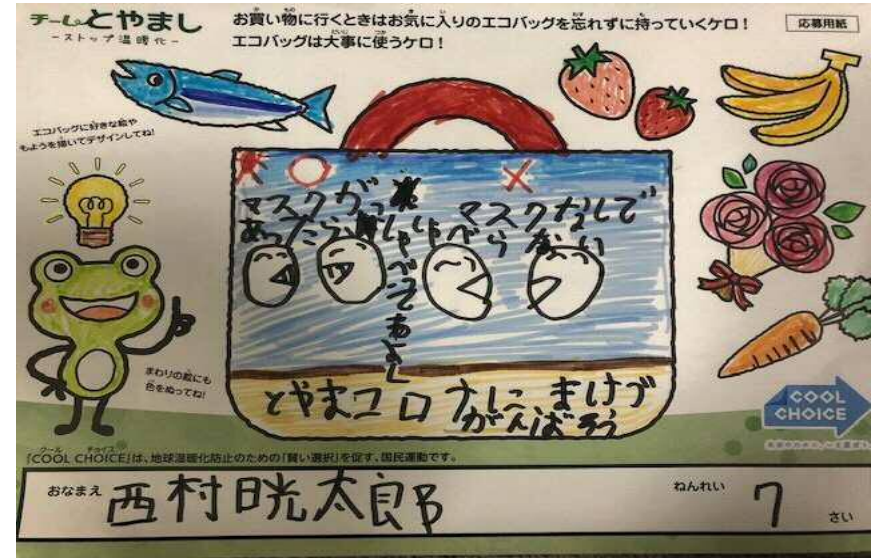 チームとやまし
－ストップ温暖化－
お買い物に行くときはお気に入りのエコバッグを忘れずに持っていくケロ！
エコバッグは大事に使うケロ！
応募用紙
エコバッグに好きな絵や
もようを描いてデザインしてね!
マスクがっ
あったら
しゃべってもよし
マスクなしで
しゃべらない
とやまコロナにまけづ
がんばろう
まわりの絵にも
色をぬってね!
COOL
CHOICE
クール チョイス
「COOL CHOICE」は、地球温暖化防止のための「賢い選択」を促す、国民運動です。
おなまえ 西村晄太郎 ねんれい 7 さい